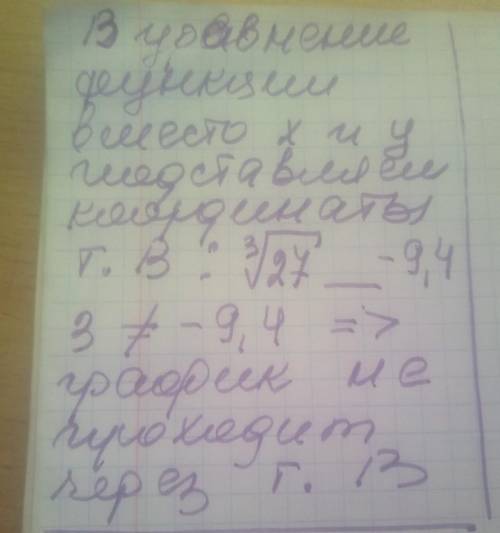 В уравнение
функции
вместо х и у
подставляем
координаты
т. В : ∛27 __ -9,4
3 ≠ -9,4 =>
график не
проходит
через т. В